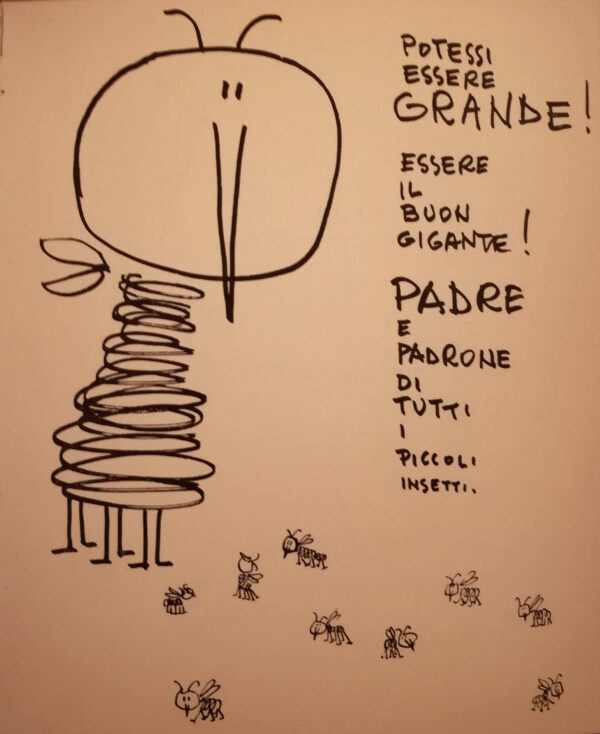 POTESSI
ESSERE
GRANDE!
ESSERE
IL
BUON
GIGANTE!
PADRE
E
PADRONE
DI
TUTTI
I
PICCOLI
INSETTI.